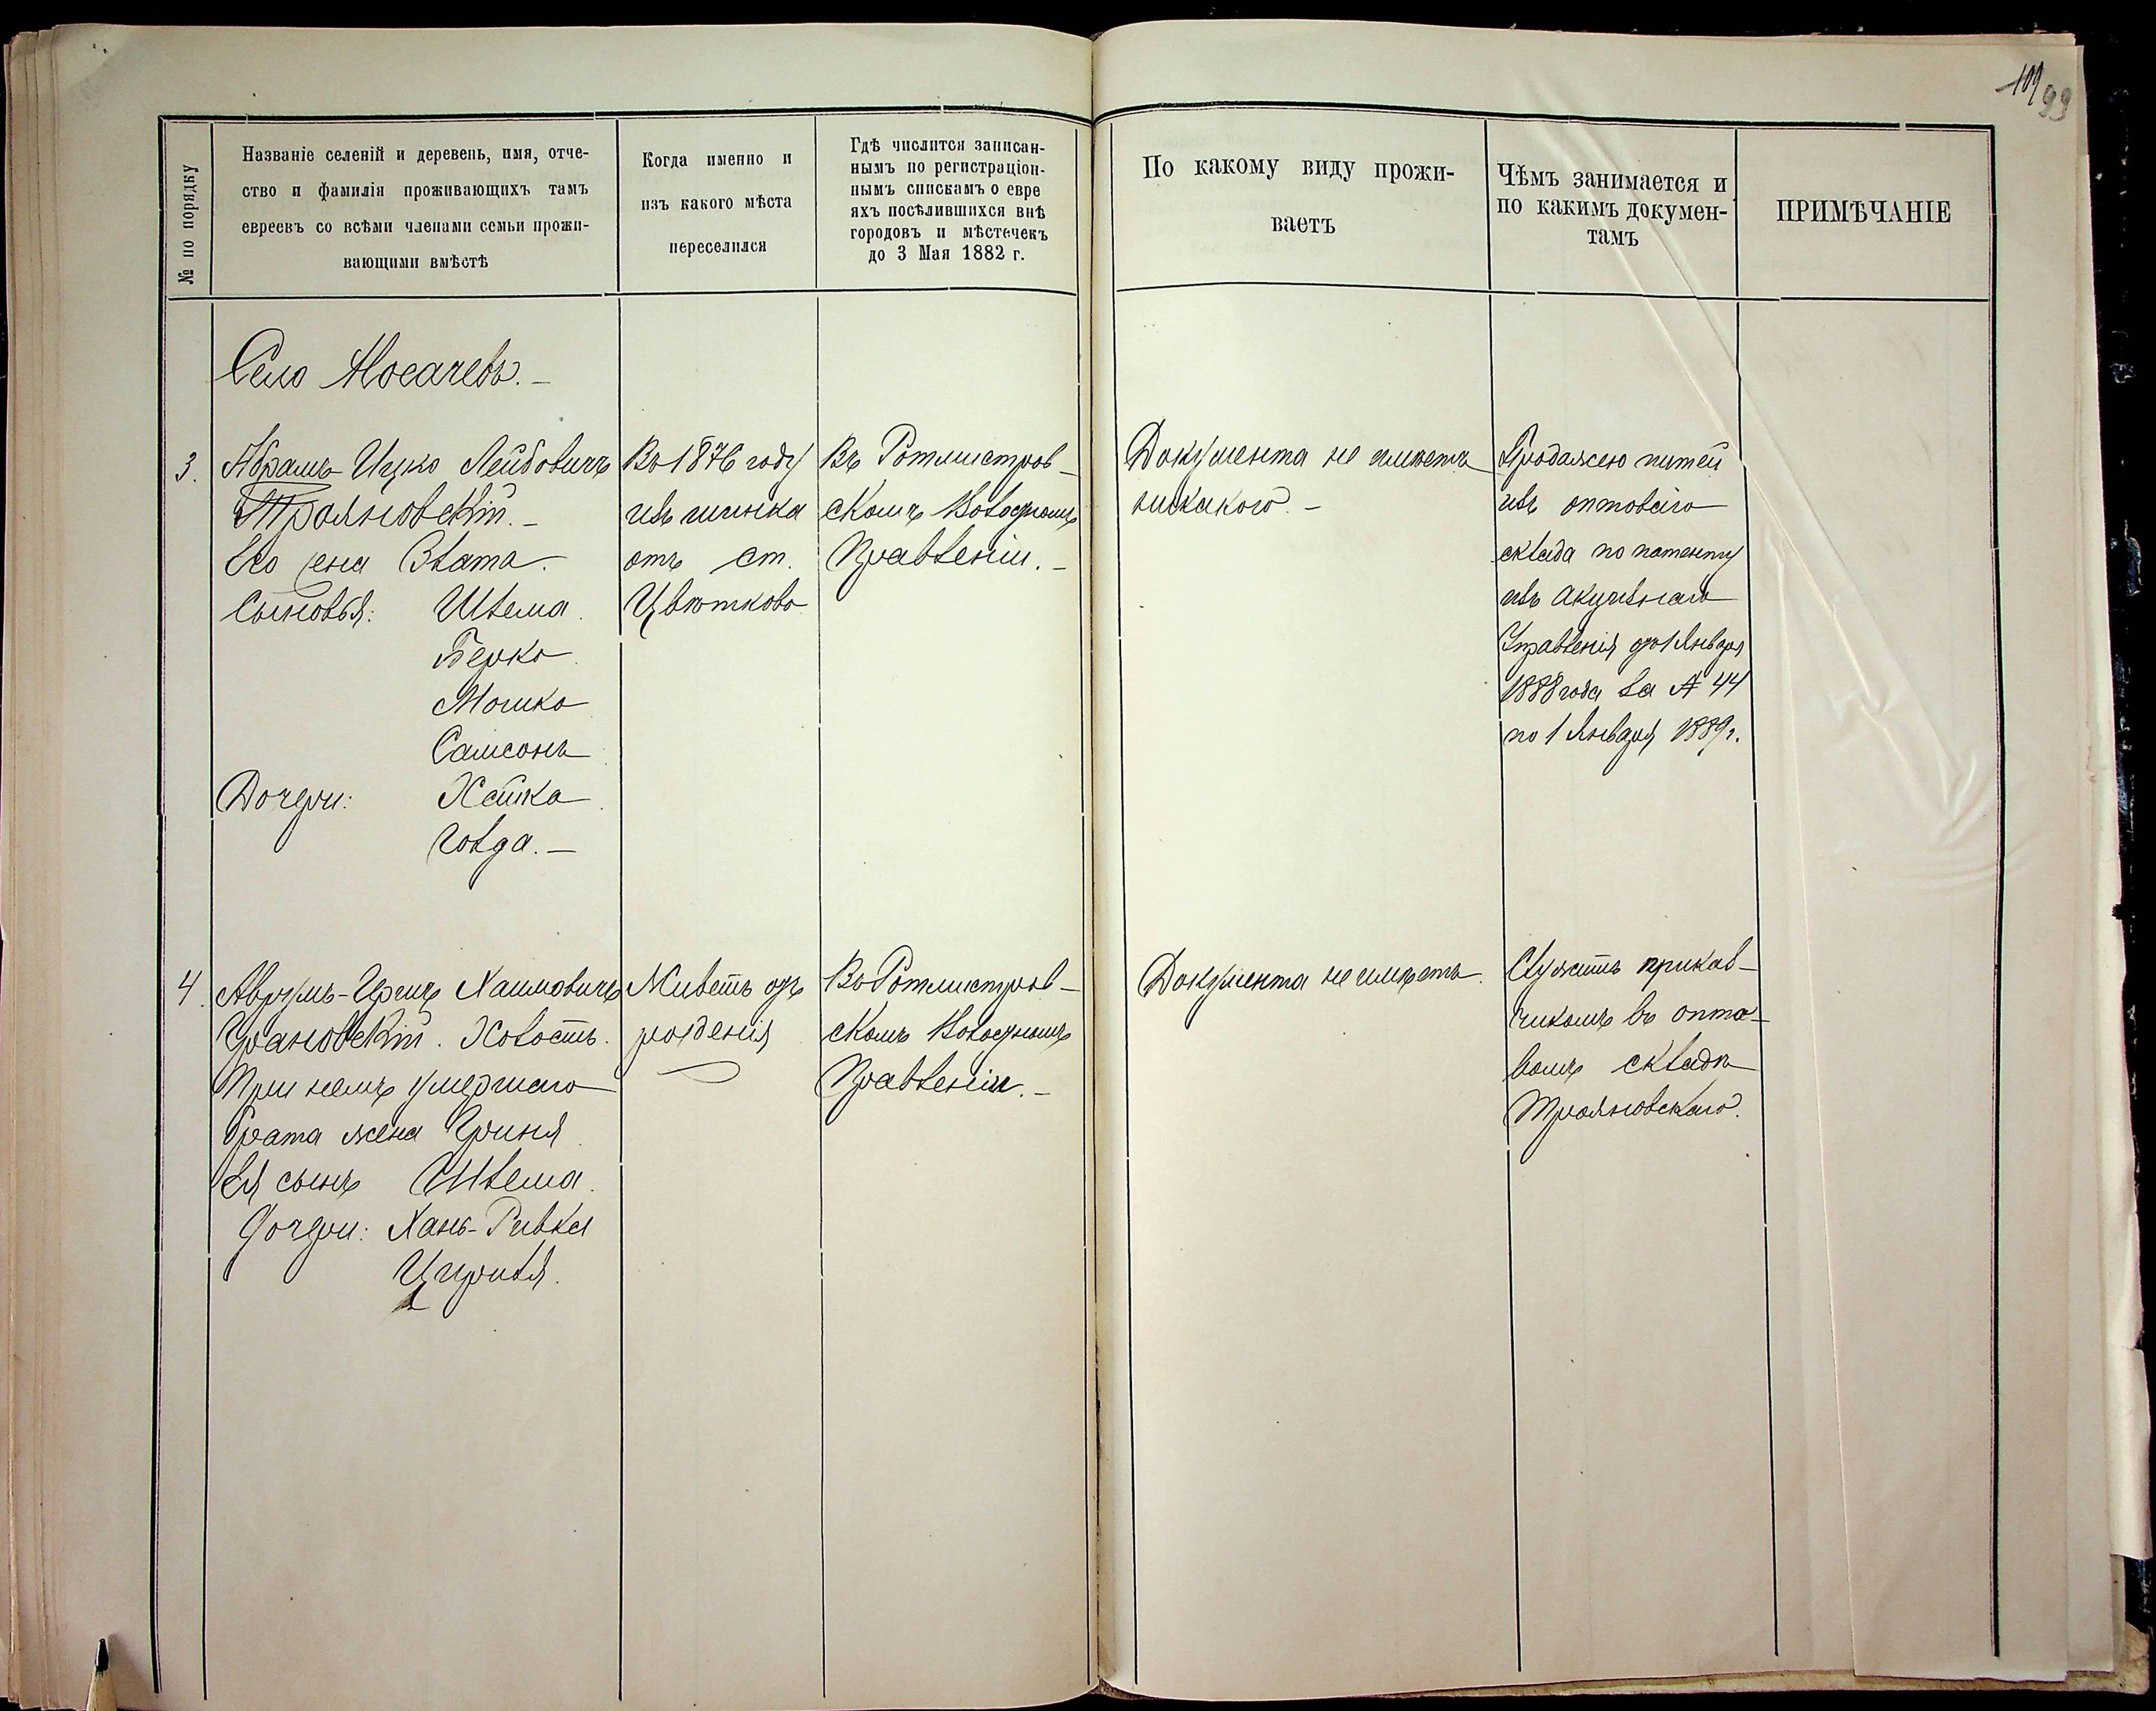 101 99
№ по порядку
Названіе селеній и деревень, имя, отче-
ство и фамилія проживающихъ тамъ
евреевъ со всѣми членами семьи прожи-
вающими вмѣстѣ
Когда именно и
изъ какого мѣста
переселился
Гдѣ числится записан-
нымъ по регистраціон-
нымъ спискамъ о евре
яхъ посѣлившихся внѣ
городовъ и мѣстечекъ
до 3 Мая 1882 г.
По какому виду прожи-
ваетъ
Чѣмъ занимается и
по какимъ докумен-
тамъ
ПРИМѢЧАНІЕ
Село Носачевъ.-
3.
Абрамъ Ицко Лейбовичъ
Трояновскій.-
Его жена Злата.
Сыновья: Шлема.
Берко.
Мошко
Самсонъ
Дочери: Хайка.
Голда.-
Въ 1876 году
изъ шинка
отъ ст.
Цвѣтково
Въ Ротмистров-
скомъ Волосномъ
Правленіи.-
Документа не имѣетъ
никакого.-
Продажею питей
изъ оптоваго
склада по патенту
изъ акцизнаго
Управленія от 1 Января
1888 года за № 44
по 1 Января 1889 г.
4.
Аврумъ-Гершъ Хаимовичъ
Грановскій. Холостъ.
При немъ умершаго
брата жена Груня.
Ея сынъ Шлема.
Дочери: Хань-Ривка
Ципля.
Живетъ отъ
рожденія
Въ Ротмистров-
скомъ Волосномъ
Правленіи.-
Документа не имѣетъ.
Служитъ прикащ-
чикомъ въ опто-
вомъ складѣ
Трояновскаго.